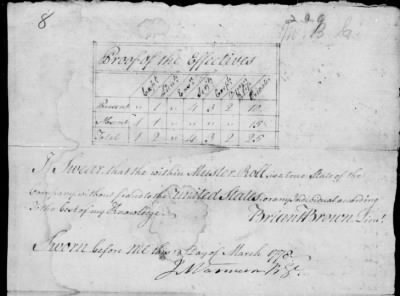 8
Proof of the Effectives
Capt Lieut Ensn Serjt Corpl
Present " 1 " 4 3 2 10
Absent 1 1 " " " " 15
Total 1 2 " 4 3 2 25
I Swear that the within Muster Roll is a true State of the
Company without fraud to the United States or any Individual according
to the best of my Knowledge.
Brient Brown Lieut.
Sworn before me this Day of March 1778
J Varnum B. G.